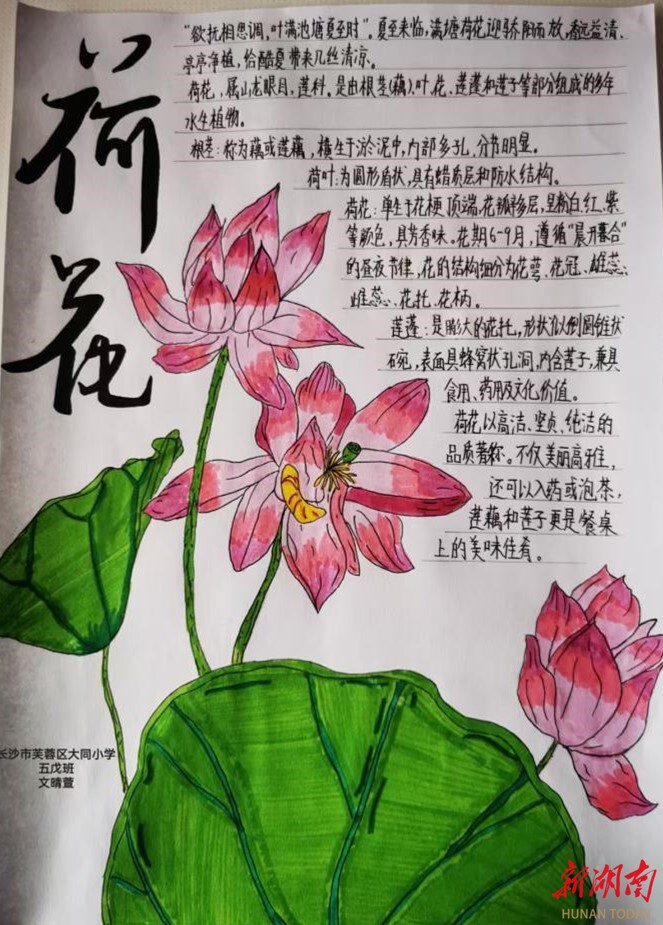 荷花
“欲抚相思调,叶满池塘夏至时”。夏至来临,满塘荷花迎骄阳而放,香远益清、
亭亭净植,给酷夏带来几丝清凉。
荷花,属山龙眼目,莲科。是由根茎(藕)、叶、花、莲蓬和莲子等部分组成的多年
水生植物。
根茎:称为藕或莲藕,横生于淤泥中,内部多孔,分节明显。
荷叶:为圆形盾状,具有蜡质层和防水结构。
荷花:单生于花梗顶端,花瓣多层,呈粉白、红、紫
等颜色,具芳香味。花期6-9月,遵循“晨开暮合”
的昼夜节律,花的结构细分为花萼、花冠、雌蕊、
雄蕊、花托、花柄。
莲蓬:是膨大的花托,形状似倒圆锥状
碗,表面具蜂窝状孔洞,内含莲子,兼具
食用、药用及文化价值。
荷花以高洁、坚贞、纯洁的
品质著称。不仅美丽高雅,
还可以入药或泡茶,
莲藕和莲子更是餐桌
上的美味佳肴。
长沙市芙蓉区大同小学
五戊班
文晴萱
新湖南
HUNAN TODAY